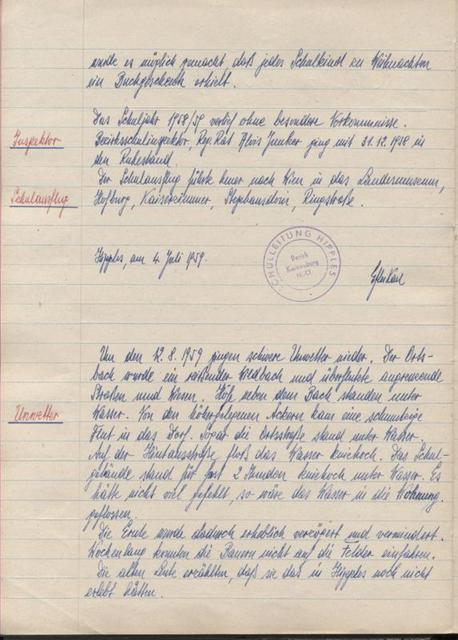 wurde es möglich gemacht daß jedes Schulkind zu Weihnachten
ein Buchgeschenk erhielt.
Das Schuljahr 1958/59 verlief ohne besondere Vorkommnisse.
Inspektor
Bezirksschulinspektor, Reg. Rat Alois Junker ging mit 31.12.1958 in
den Ruhestand.
Schulausflug
Der Schulausflug führte heuer nach Wien in das Landesmuseum,
Hofburg, Kaiserzimmer, Stephansdom, Ringstraße.
Hipples, am 4. Juli 1959.
SCHULLEITUNG HIPPLES
Bezirk
Korneuburg
N.Ö.
Um den 12.8.1959 gingen schwere Unwetter nieder. Der Orts-
bach wurde ein reißender Wildbach und überflutete angrenzende
Straßen und Wiesen. Höfe neben dem Bach standen unter
Unwetter
Wasser. Von den höhergelegenen Äckern kam eine schmutzige
Flut in das Dorf. Sogar die Ortsstraße stand unter Wasser.
Auf der Hintausstraße floß das Wasser kniehoch. Das Schul-
gebäude stand für fast 2 Stunden kniehoch unter Wasser. Es
hätte nicht viel gefehlt, so wäre das Wasser in die Wohnung
geflossen.
Die Ernte wurde dadurch erheblich verzögert und vermindert.
Wochenlang konnten die Bauern nicht auf die Felder einfahren.
Die alten Leute erzählten, daß sie das in Hipples noch nicht
erlebt hätten.